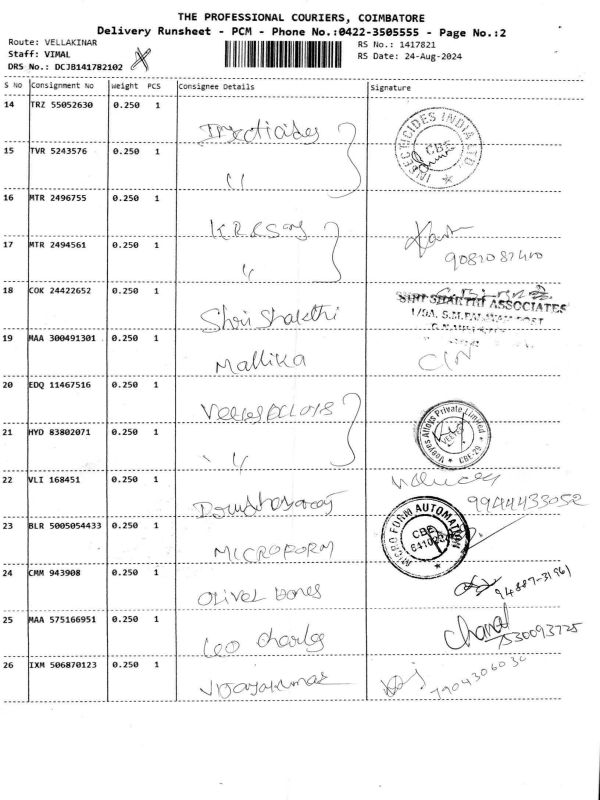 THE PROFESSIONAL COURIERS, COIMBATORE
Delivery Runsheet - PCM - Phone No.:0422-3505555 - Page No.:2
Route: VELLAKINAR
RS No.: 1417821
Staff: VIMAL
RS Date: 24-Aug-2024
DRS No.: DCJB141782102
S No Consignment No Weight PCS Consignee Details Signature
14 TRZ 55052630 0.250 1 Insecticides
INSECTICIDES INDIA LTD. CBE
15 TVR 5243576 0.250 1 "
16 MTR 2496755 0.250 1
17 MTR 2494561 0.250 1 "
18 COK 24422652 0.250 1 Shri Shakthi
SIRI SHAKTHI ASSOCIATES
19 MAA 300491301 0.250 1 Mallika
20 EDQ 11467516 0.250 1
Veeyes Alloys Private Limited CBE-29
21 HYD 83802071 0.250 1 "
22 VLI 168451 0.250 1
9944433052
23 BLR 5005054433 0.250 1 MICROFORM
MICRO FORM AUTOMATION CBE
24 CMM 943908 0.250 1 Oliver bones
94887-31961
25 MAA 575166951 0.250 1 Leo Charles
7530093725
26 IXM 506870123 0.250 1 Vijayakumar
7904306030